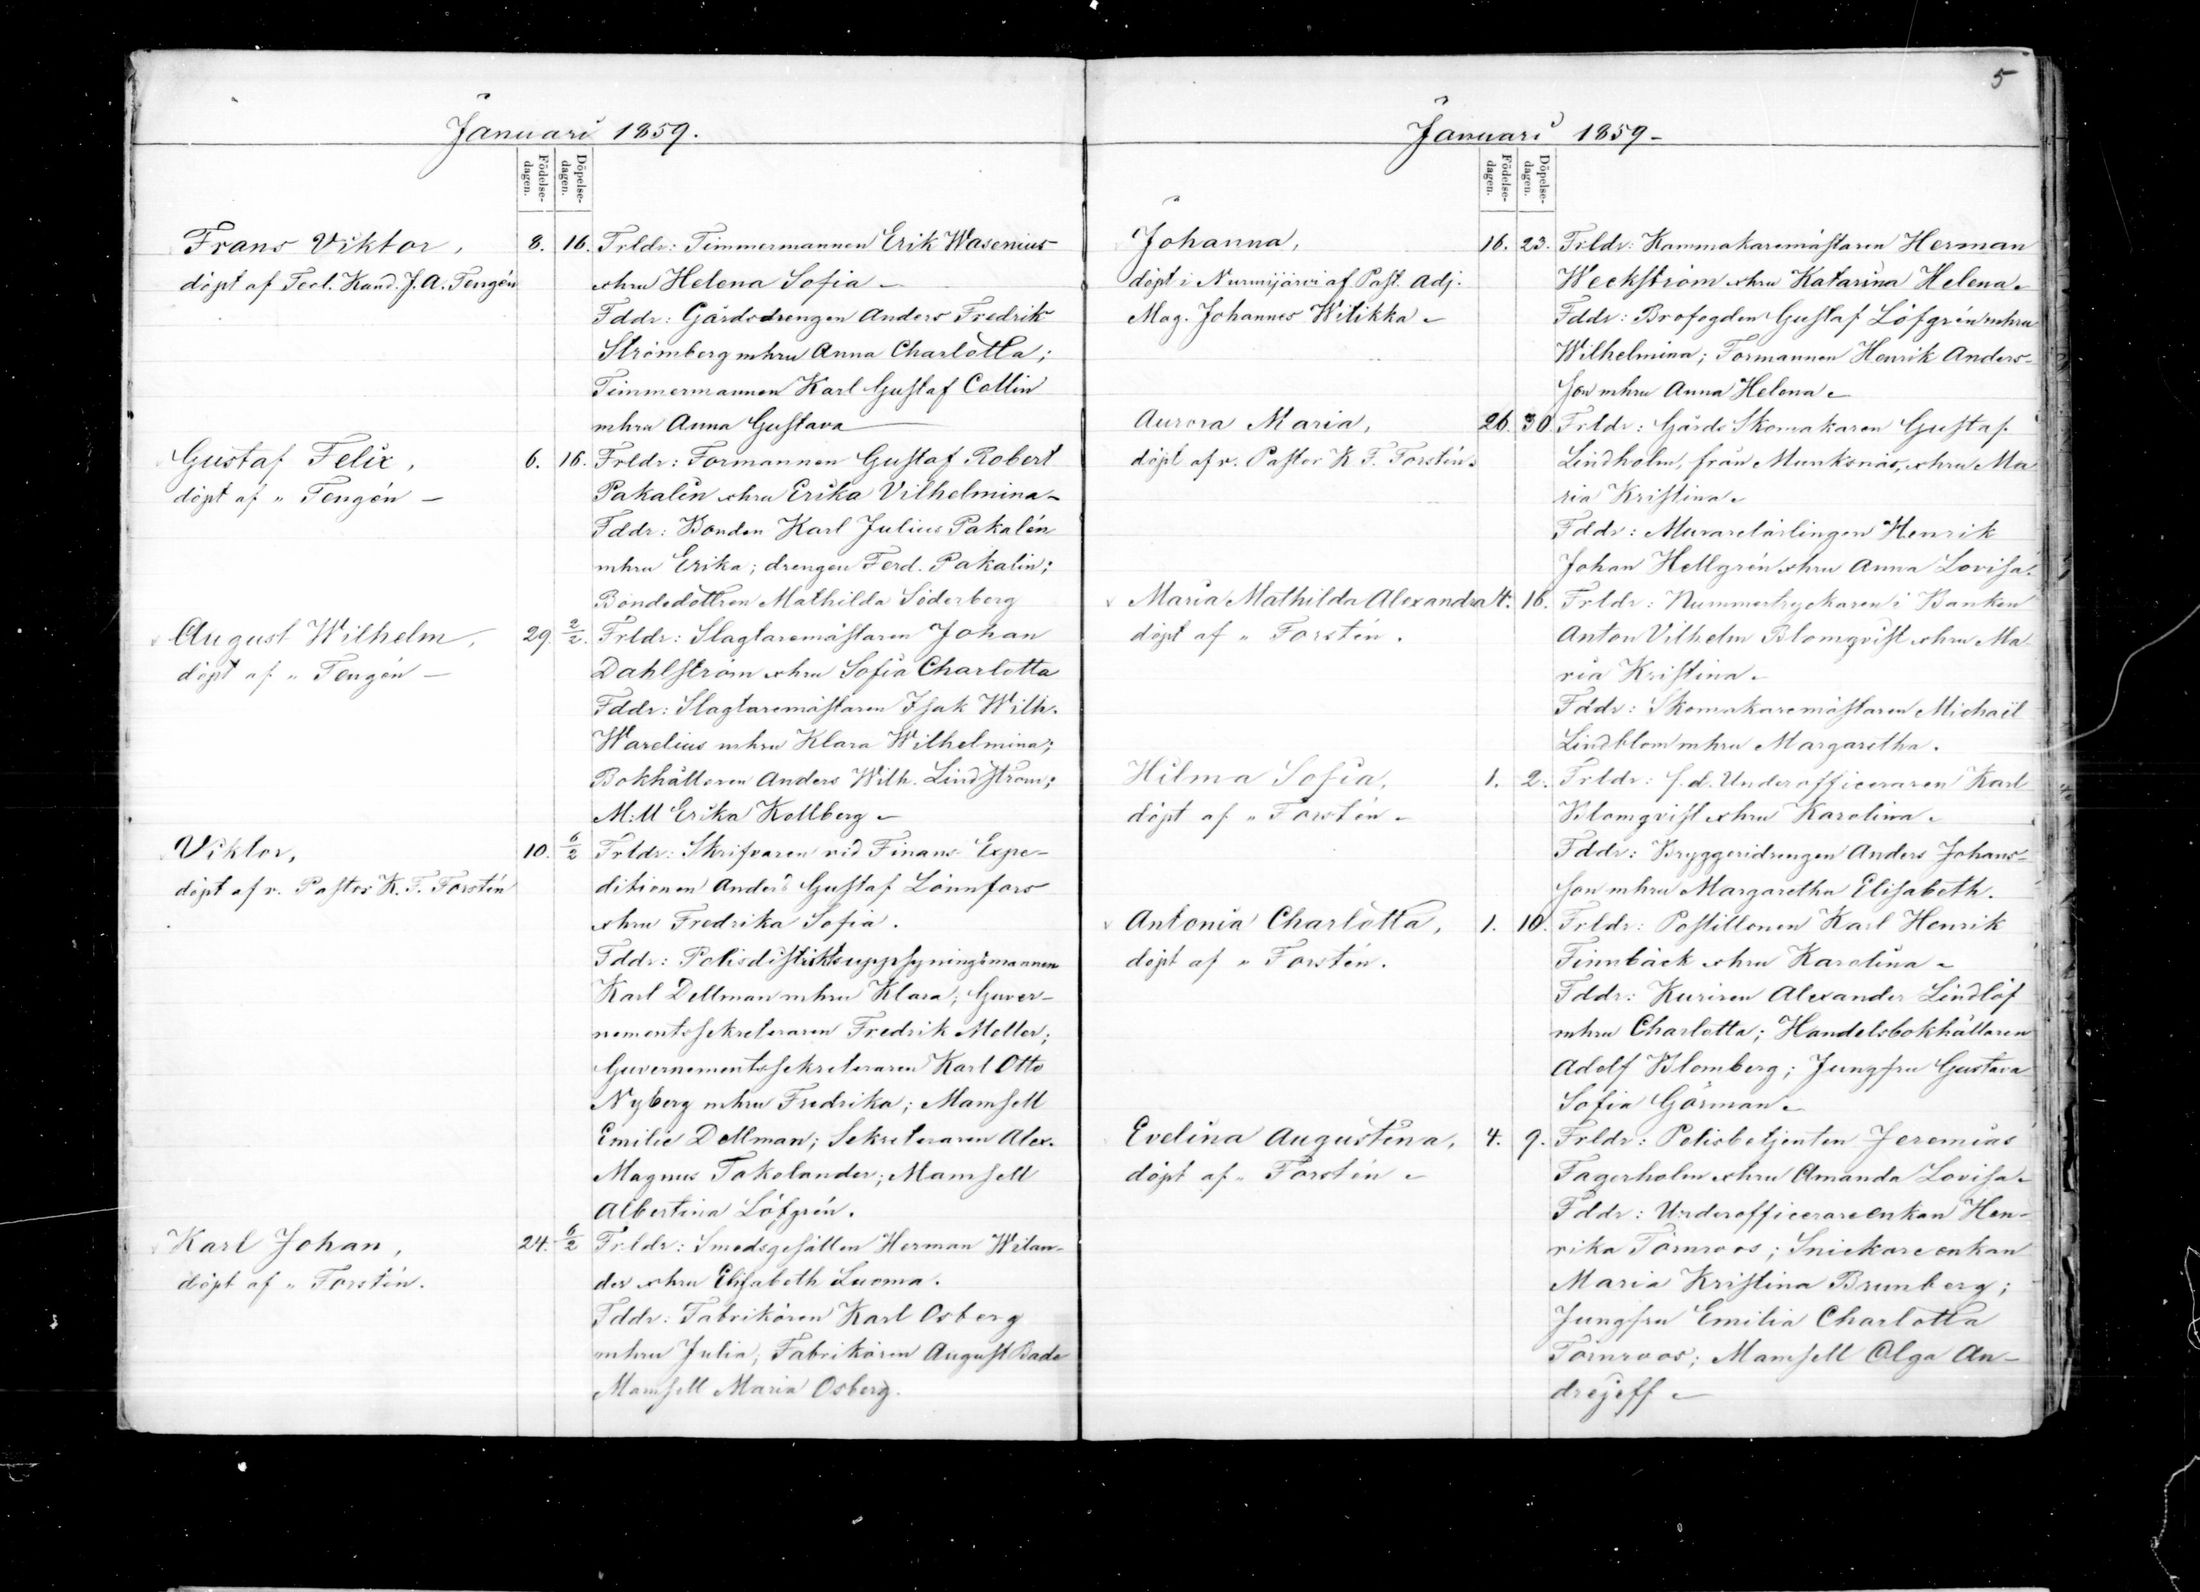 5
Januari 1859.
Födelse-dagen.
Döpelse-dagen.
Frans Viktor,
döpt af Teol. Kand. J. A. Tengén
8. 16.
Frldr: Timmermannen Erik Wasenius
o hru Helena Sofia –
Fddr: Gårdsdrengen Anders Fredrik
Strömberg m hru Anna Charlotta;
Timmermannen Karl Gustaf Collin
m hru Anna Gustava
Gustaf Felix,
döpt af " Tengén –
6. 16.
Frldr: Formannen Gustaf Robert
Pakalén o hru Erika Vilhelmina –
Fddr: Bonden Karl Julius Pakalén
m hru Erika; drengen Ferd. Pakalén;
Bondedottren Mathilda Söderberg
August Wilhelm,
döpt af " Tengén –
29. 2/2.
Frldr: Slagtaremästaren Johan
Dahlström o hru Sofia Charlotta
Fddr: Slagtaremästaren Isak Wilh.
Warelius m hru Klara Wilhelmina;
Bokhållaren Anders Wilh. Lindström;
M:ll Erika Kollberg –
Viktor,
döpt af v. Pastor K. F. Forstén
10. 6/2
Frldr: Skrifvaren vid Finans Expe-
ditionen Anders Gustaf Lönnfors
o hru Fredrika Sofia.
Fddr: Polisdistriktsuppsyningsmannen
Karl Dellman m hru Klara; Guver-
nementssekreteraren Fredrik Moller;
Guvernementssekreteraren Karl Otto
Nyberg m hru Fredrika; Mamsell
Emilie Dellman; Sekreteraren Alex.
Magnus Tokolander; Mamsell
Albertina Löfgrén.
Karl Johan,
döpt af " Forstén.
24. 6/2
Frldr: Smedsgesällen Herman Wilan-
der o hru Elisabeth Luoma.
Fddr: Fabrikören Karl Osberg
m hru Julia; Fabrikören August Bade
Mamsell Maria Osberg.
Januari 1859 –
Födelse-dagen.
Döpelse-dagen.
Johanna,
döpt i Nurmijärvi af Past. Adj.
Mag. Johannes Witikka –
16. 23.
Frldr: Kammakaremästaren Herman
Weckström o hru Katarina Helena –
Fddr: Brofogden Gustaf Löfgrén m hru
Wilhelmina; Formannen Henrik Anders-
son m hru Anna Helena –
Aurora Maria,
döpt af v. Pastor K. F. Forstén.
26. 30.
Frldr: Gårds Skomakaren Gustaf
Lindholm, från Munksnäs, o hru Ma
ria Kristina –
Fddr: Murarelärlingen Henrik
Johan Hellgrén o hru Anna Lovisa.
Maria Mathilda Alexandra
döpt af " Forstén.
4. 16.
Frldr: Nummertryckaren i Banken
Anton Vilhelm Blomqvist o hru Ma
ria Kristina –
Fddr: Skomakaremästaren Michaël
Lindblom m hru Margaretha.
Hilma Sofia,
döpt af " Forstén –
1. 2.
Frldr: f. d. Underofficeraren Karl
Blomqvist o hru Karolina –
Fddr: Bryggeridrengen Anders Johans-
son m hru Margaretha Elisabeth.
Antonia Charlotta,
döpt af " Forstén.
1. 10.
Frldr: Postillonen Karl Henrik
Finnbäck o hru Karolina –
Fddr: Kuriren Alexander Lindlöf
m hru Charlotta; Handelsbokhållaren
Adolf Blomberg; Jungfru Gustava
Sofia Görman –
Evelina Augustina,
döpt af " Forstén –
4. 9.
Frldr: Polisbetjenten Jeremias
Fagerholm o hru Amanda Lovisa –
Fddr: Underofficerareenkan Hen-
rika Törnroos; Snickareenkan
Maria Kristina Brunberg;
Jungfru Emilia Charlotta
Törnroos; Mamsell Olga An-
drejeff –